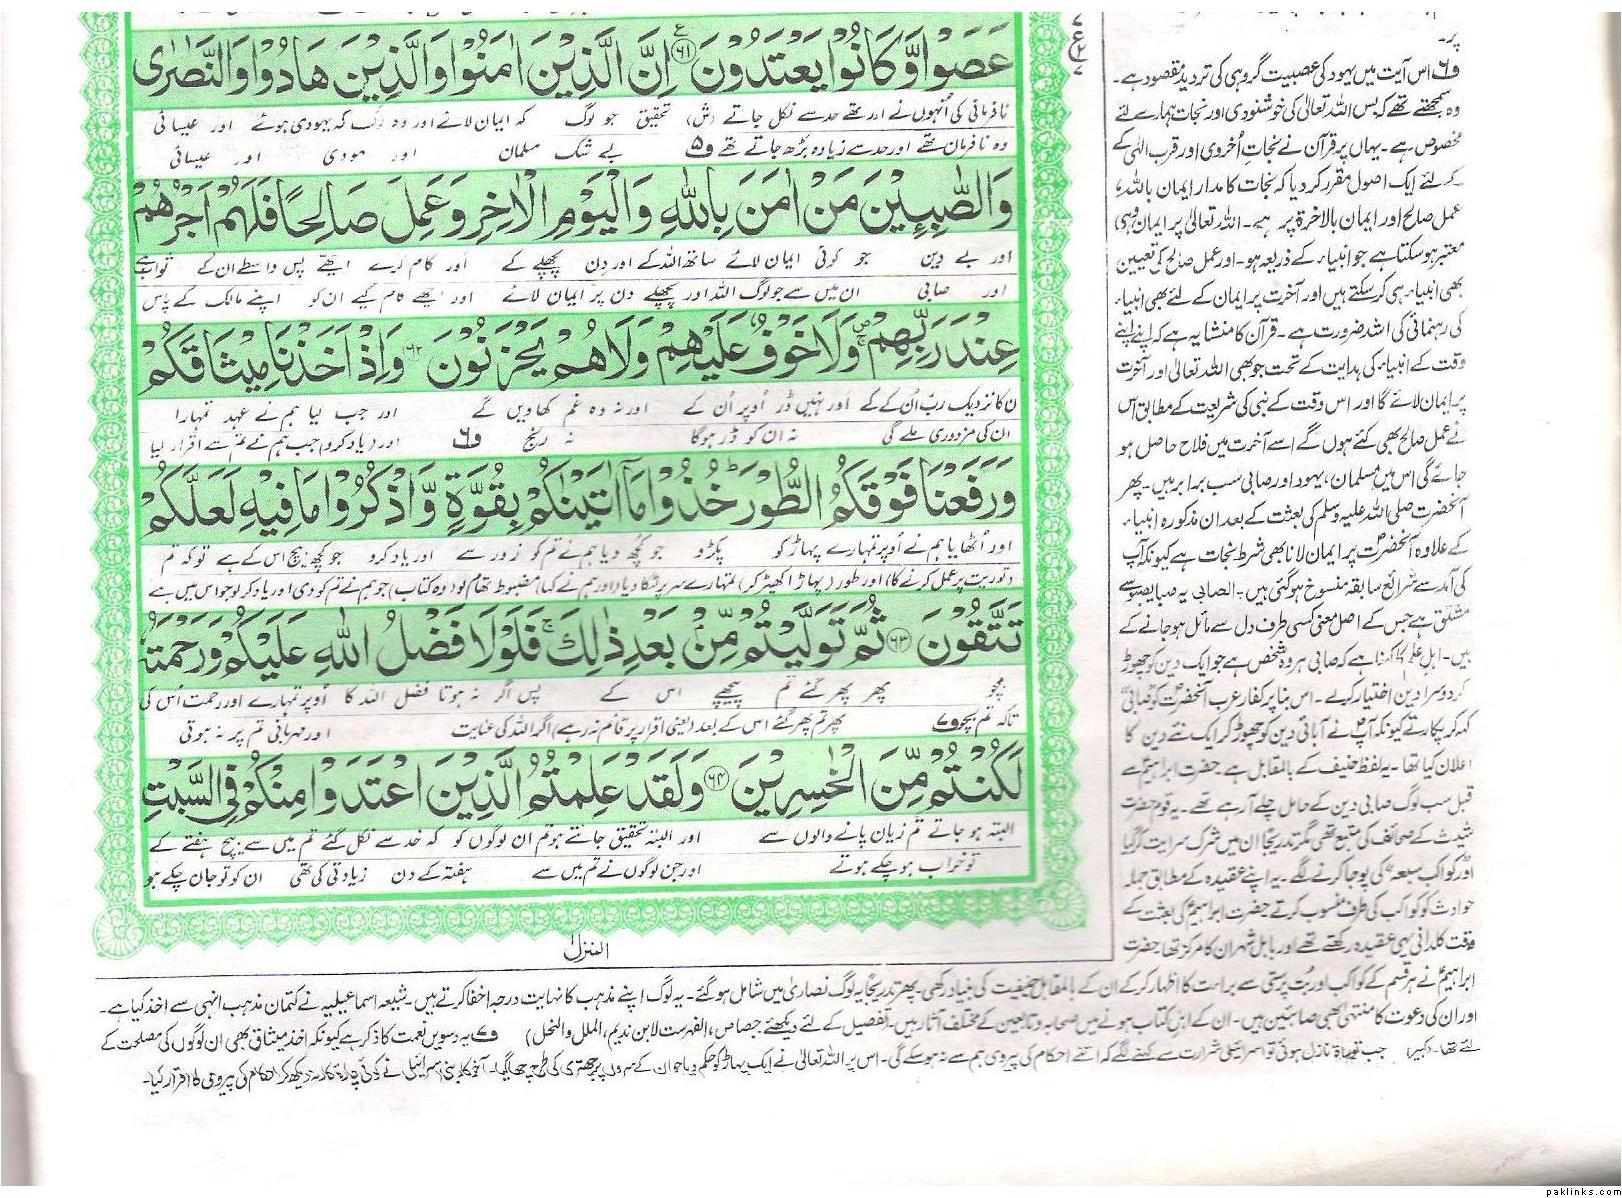 عَصَوْا وَّكَانُوْا يَعْتَدُوْنَ ﴿٦١﴾ اِنَّ الَّذِيْنَ اٰمَنُوْا وَالَّذِيْنَ هَادُوْا وَالنَّصٰرٰى
نافرمانی کی اُنہوں نے اور تھے حد سے نکل جاتے (ش) تحقیق جو لوگ کہ ایمان لائے اور وہ لوگ کہ یہودی ہوئے اور عیسائی
وہ نافرمان تھے اور حد سے زیادہ بڑھ جاتے تھے ف۵ بے شک مسلمان اور یہودی اور عیسائی
وَالصّٰبِـِٕيْنَ مَنْ اٰمَنَ بِاللّٰهِ وَالْيَوْمِ الْاٰخِرِ وَعَمِلَ صَالِحًا فَلَهُمْ اَجْرُهُمْ
اور بے دین جو کوئی ایمان لائے ساتھ اللہ کے اور دن پچھلے کے اور کام کرے اچھے پس واسطے ان کے ثواب ہے
اور صابی ان میں سے جو لوگ اللہ اور پچھلے دن پر ایمان لائے اور اچھے کام کیے ان کو اپنے مالک کے پاس
عِنْدَ رَبِّهِمْ ۖ وَلَا خَوْفٌ عَلَيْهِمْ وَلَا هُمْ يَحْزَنُوْنَ ﴿٦٢﴾ وَاِذْ اَخَذْنَا مِيْثَاقَكُمْ
ان کا نزدیک رب اُن کے کے اور نہیں ڈر اُوپر اُن کے اور نہ وہ غم کھاویں گے اور جب لیا ہم نے عہد تمہارا
ان کی مزدوری ملے گی نہ ان کو ڈر ہوگا نہ رنج ف۶ اور (یاد کرو) جب ہم نے تم سے اقرار لیا
وَرَفَعْنَا فَوْقَكُمُ الطُّوْرَ ۭ خُذُوْا مَآ اٰتَيْنٰكُمْ بِقُوَّةٍ وَّاذْكُرُوْا مَا فِيْهِ لَعَلَّكُمْ
اور اُٹھایا ہم نے اُوپر تمہارے پہاڑ کو پکڑو جو کچھ دیا ہم نے تم کو زور سے اور یاد کرو جو کچھ بیچ اس کے ہے تو کہ تم
(توریت پر عمل کرنے کا) اور طور (پہاڑ اکھیڑ کر) تمہارے سر پر لٹکا دیا (اور ہم نے کہا) مضبوط تھام لو (وہ کتاب) جو ہم نے تم کو دی اور یاد کر لو جو اس میں ہے
تَتَّقُوْنَ ﴿٦٣﴾ ثُمَّ تَوَلَّيْتُمْ مِّنْۢ بَعْدِ ذٰلِكَ ۚ فَلَوْلَا فَضْلُ اللّٰهِ عَلَيْكُمْ وَرَحْمَتُهٗ
بچو پھر پھر گئے تم پیچھے اس کے پس اگر نہ ہوتا فضل اللہ کا اُوپر تمہارے اور رحمت اُس کی
تاکہ تم بچو ف۷ پھر تم پھر گئے اس کے بعد (یعنی اقرار پر قائم نہ رہے) اگر اللہ کی عنایت اور مہربانی تم پر نہ ہوتی
لَكُنْتُمْ مِّنَ الْخٰسِرِيْنَ ﴿٦٤﴾ وَلَقَدْ عَلِمْتُمُ الَّذِيْنَ اعْتَدَوْا مِنْكُمْ فِي السَّبْتِ
البتہ ہو جاتے تم زیان پانے والوں سے اور البتہ تحقیق جانتے ہو تم ان لوگوں کو کہ حد سے نکل گئے تم میں سے بیچ ہفتے کے
تو خراب ہو چکے ہوتے اور جن لوگوں نے تم میں سے ہفتہ کے دن زیادتی کی تھی ان کو تو جان چکے ہو
المنزل
پر۔
ف۶ اس آیت میں یہود کی عصبیت گروہی کی تردید مقصود ہے۔
وہ سمجھتے تھے کہ بس اللہ تعالیٰ کی خوشنودی اور نجات ہمارے لئے
مخصوص ہے۔ یہاں پر قرآن نے نجات اُخروی اور قرب الٰہی کے
لئے ایک اصول مقرر کر دیا کہ نجات کا مدار ایمان باللہ،
عمل صالح اور ایمان بالآخرۃ پر ہے۔ اللہ تعالیٰ پر ایمان وہی
معتبر ہو سکتا ہے جو انبیاء کے ذریعہ ہو۔ اور عمل صالح کی تعیین
بھی انبیاء ہی کر سکتے ہیں اور آخرت پر ایمان کے لئے بھی انبیاء
کی رہنمائی کی اشد ضرورت ہے۔ قرآن کا منشا یہ ہے کہ اپنے اپنے
وقت کے انبیاء کی ہدایت کے تحت جو بھی اللہ تعالیٰ اور آخرت
پر ایمان لائے گا اور اس وقت کے نبی کی شریعت کے مطابق اس
نے عمل صالح بھی کئے ہوں گے اسے آخرت میں فلاح حاصل ہو
جائے گی اس میں مسلمان، یہود اور صابی سب برابر ہیں۔ پھر
آنحضرت صلی اللہ علیہ وسلم کی بعثت کے بعد ان مذکورہ انبیاء
کے علاوہ آنحضرتؐ پر ایمان لانا بھی شرط نجات ہے کیونکہ آپ
کی آمد سے شرائع سابقہ منسوخ ہو گئی ہیں۔ الصابی یہ صبا یصبو سے
مشتق ہے جس کے اصل معنی کسی طرف دل سے مائل ہو جانے کے
ہیں۔ اہل علم کا کہنا ہے کہ صابی ہر وہ شخص ہے جو ایک دین کو چھوڑ
کر دوسرا دین اختیار کر لے۔ اس بنا پر کفار عرب آنحضرتؐ کو "صابی"
کہہ کر پکارتے کیونکہ آپؐ نے آبائی دین کو چھوڑ کر ایک نئے دین کا
اعلان کیا تھا۔ یہ لفظ حنیف کے بالمقابل ہے۔ حضرت ابراہیمؑ سے
قبل سب لوگ صابی دین کے حامل چلے آ رہے تھے۔ یہ قوم حضرت
شیث کے صحائف کی متبع تھی مگر تدریجاً ان میں شرک سرایت کر گیا
اور کواکب سبعہ کی پوجا کرنے لگے۔ یہ اپنے عقیدہ کے مطابق جملہ
حوادث کو کواکب کی طرف منسوب کرتے حضرت ابراہیمؑ کی بعثت کے
وقت کلدانی یہی عقیدہ رکھتے تھے اور بابل شہر ان کا مرکز تھا۔ حضرت
ابراہیمؑ نے ہر قسم کے کواکب اور بُت پرستی سے براءت کا اظہار کر کے ان کے بالمقابل حنیفیت کی بنیاد رکھی۔ پھر تدریجاً یہ لوگ نصاریٰ میں شامل ہو گئے۔ یہ لوگ اپنے مذہب کا نہایت درجہ اخفا کرتے ہیں۔ شیعہ اسماعیلیہ نے کتمان مذہب انہی سے اخذ کیا ہے۔
اور ان کی دعوت کا منتہی بھی صابئین ہیں۔ ان کے اہل کتاب ہونے میں صحابہ و تابعین کے مختلف آثار ہیں۔ (تفصیل کے لئے دیکھئے: جصاص، الفہرست لابن ندیم، الملل والنحل) ف۷ یہ دسویں نعمت کا ذکر ہے کیونکہ اخذ میثاق بھی ان لوگوں کی مصلحت کے
لئے تھا۔ (کبیر) جب تورات نازل ہوئی تو اسرائیلی شرارت سے کہنے لگے کہ اتنے احکام کی پیروی ہم سے نہ ہو سکے گی۔ اس پر اللہ تعالیٰ نے ایک پہاڑ کو حکم دیا جو ان کے سروں پر چھتری کی طرح چھا گیا۔ آخرکار بنی اسرائیل نے کوئی چارہ کار نہ دیکھ کر احکام کی پیروی کا اقرار کیا۔
paklinks.com